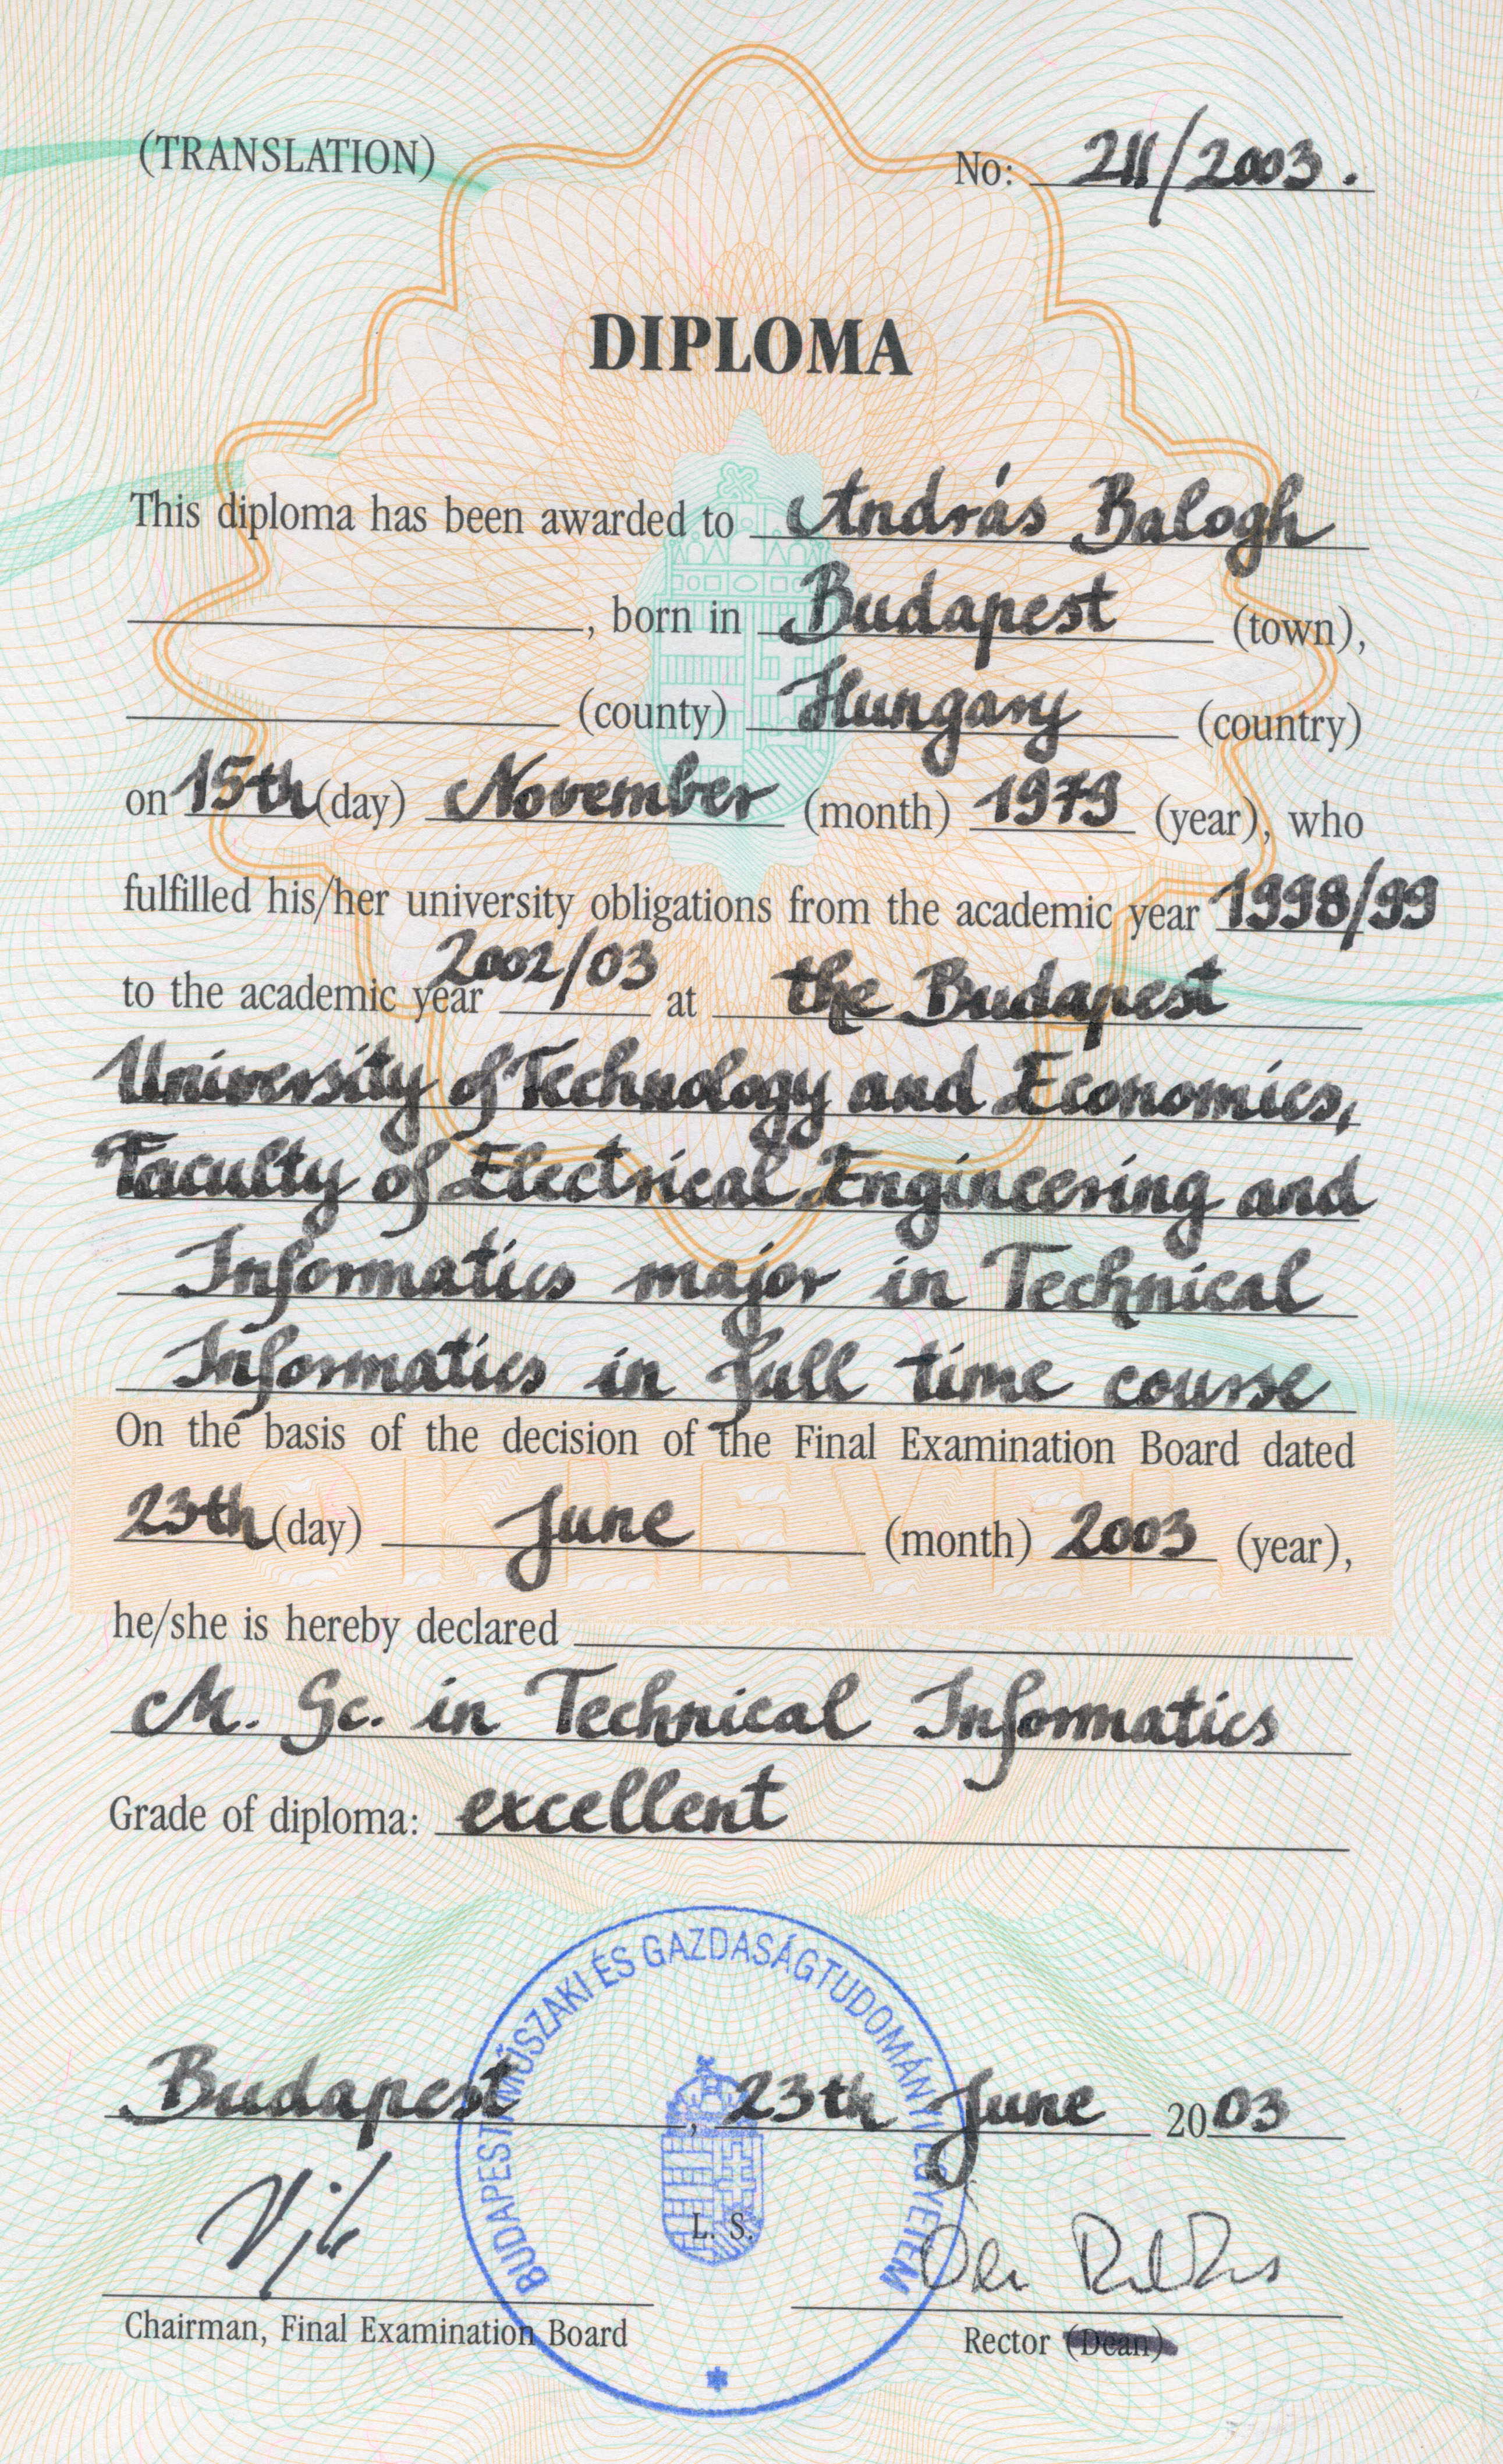 (TRANSLATION)
No: 211/2003.
DIPLOMA
This diploma has been awarded to András Balogh
, born in Budapest (town),
(county) Hungary (country)
on 15th (day) November (month) 1979 (year), who
fulfilled his/her university obligations from the academic year 1998/99
to the academic year 2002/03 at the Budapest
University of Technology and Economics,
Faculty of Electrical Engineering and
Informatics major in Technical
Informatics in full time course
On the basis of the decision of the Final Examination Board dated
23th (day) June (month) 2003 (year),
he/she is hereby declared
M. Sc. in Technical Informatics
Grade of diploma: excellent
BUDAPESTI MŰSZAKI ÉS GAZDASÁGTUDOMÁNYI EGYETEM
Budapest, 23th June 2003
L. S.
Chairman, Final Examination Board
Rector (Dean)